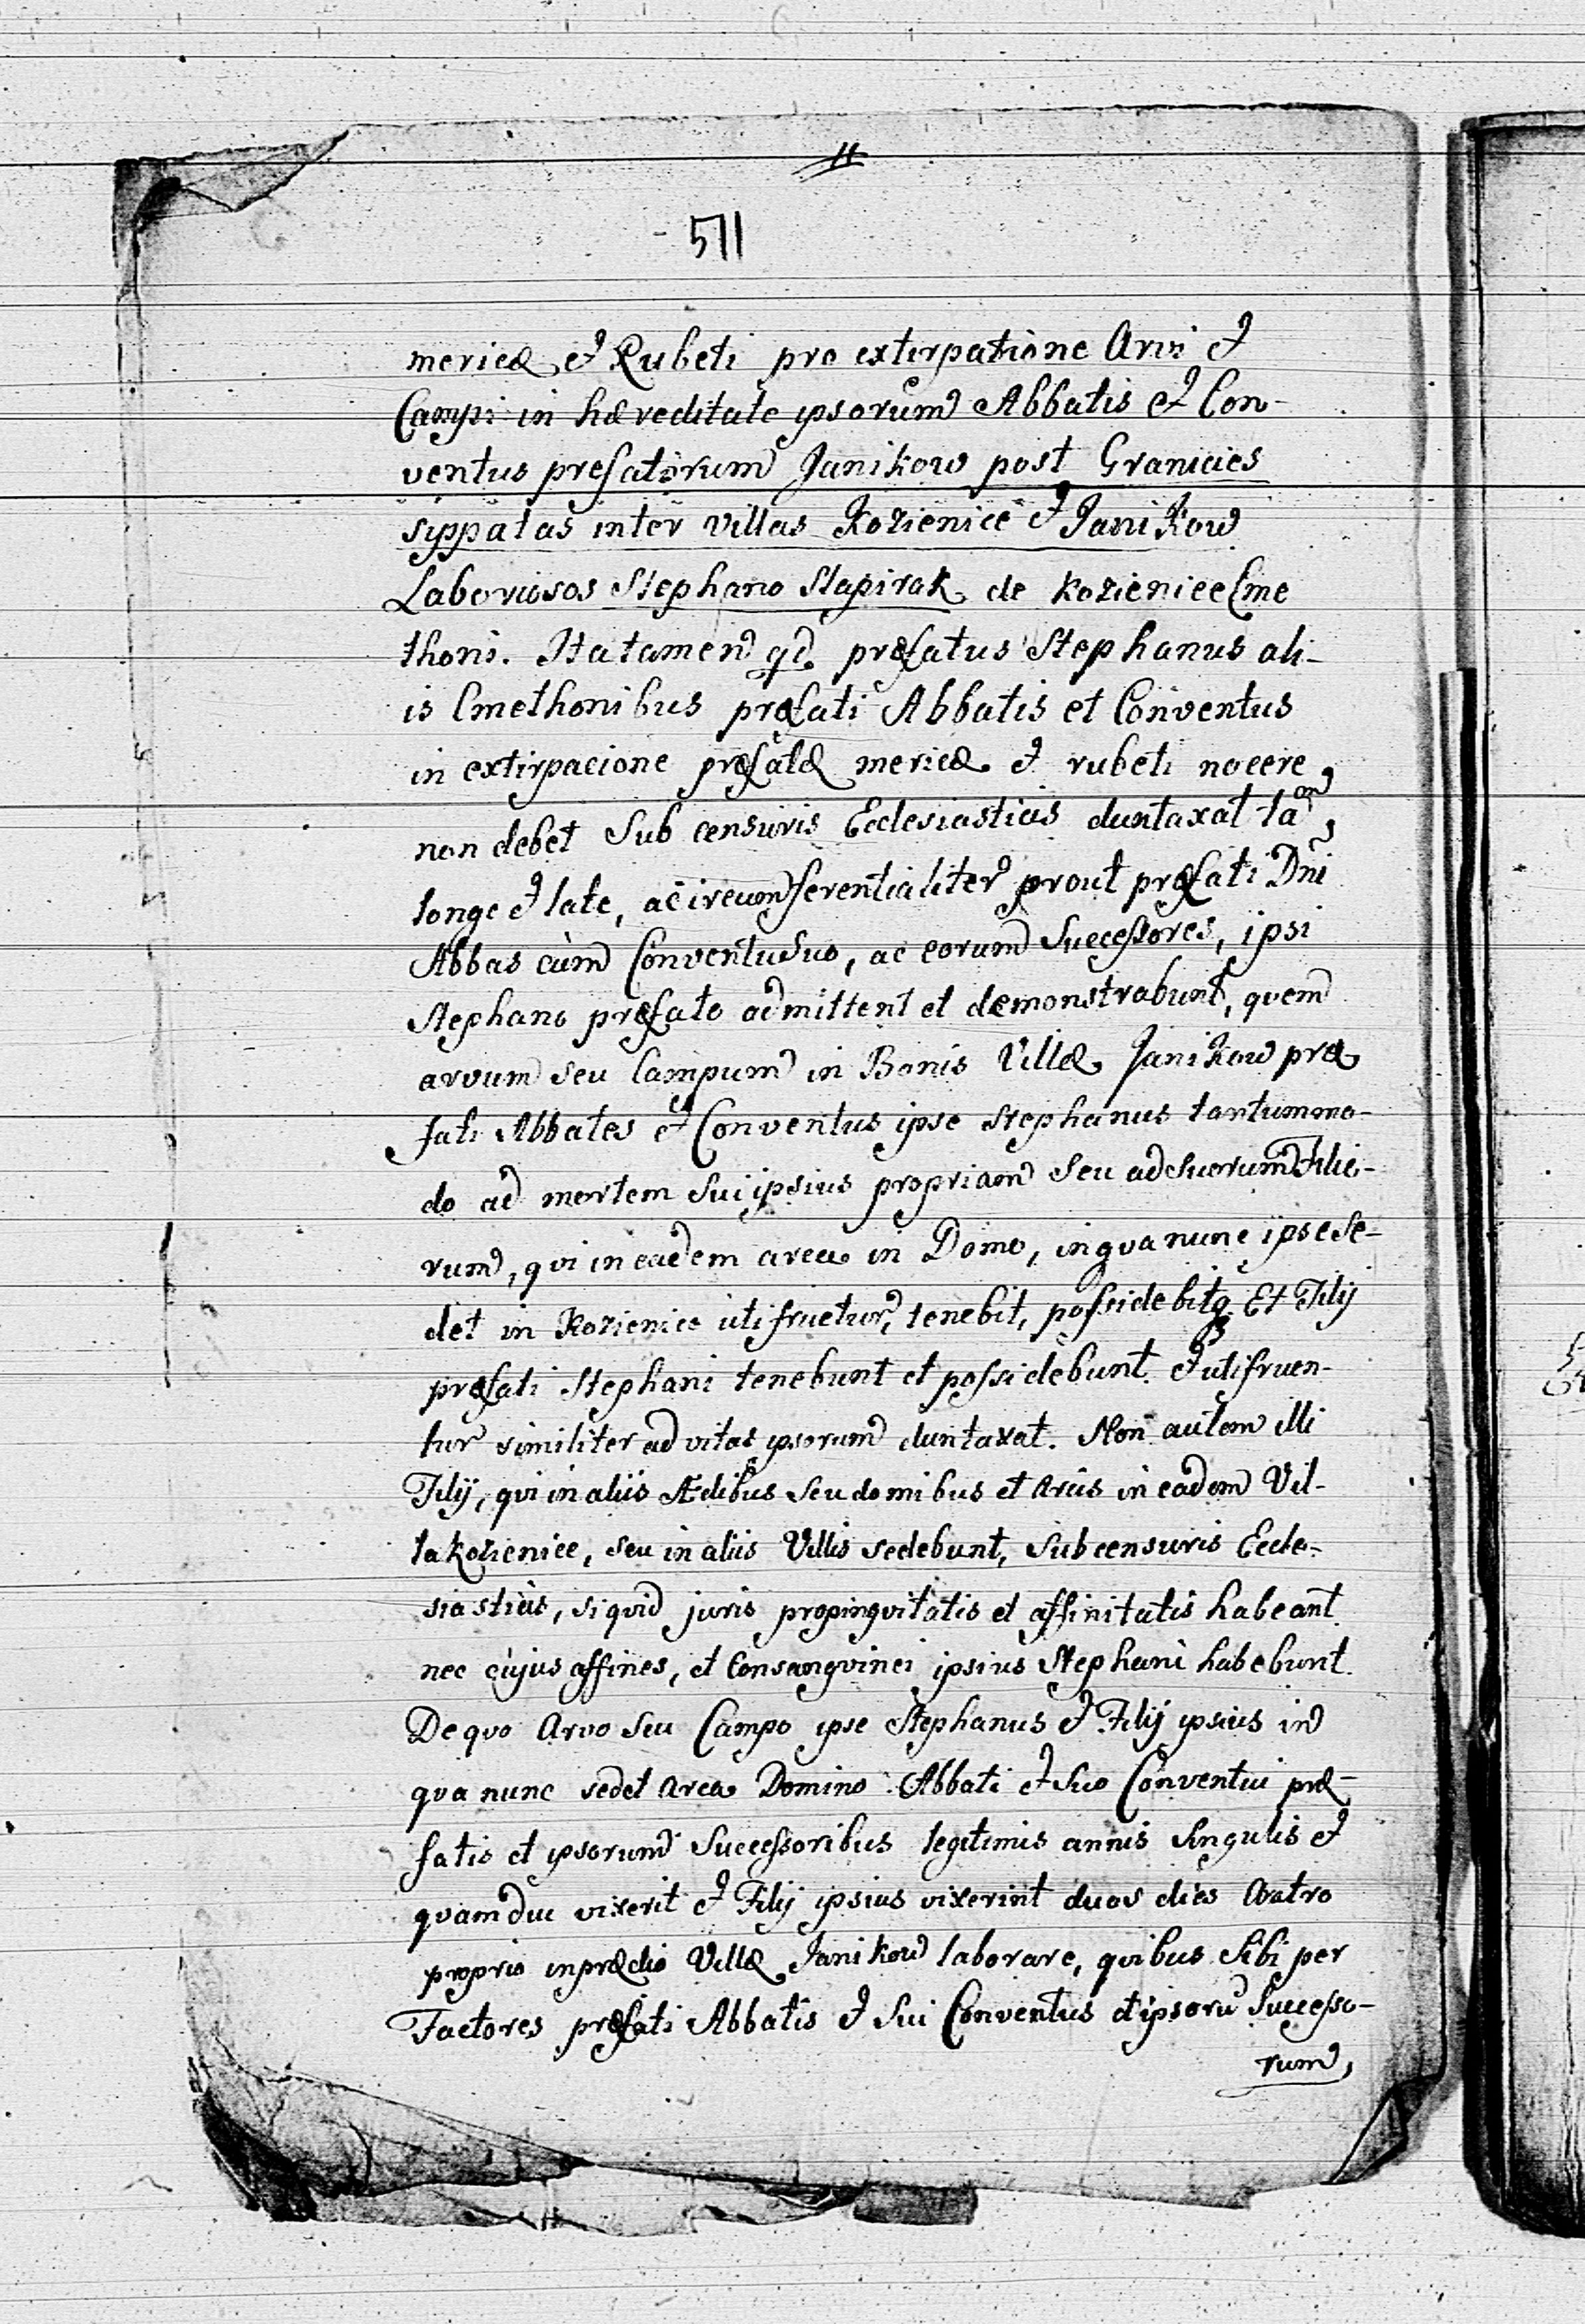 11
- 511
mericæ et Rubeti pro extirpatione Arvi et
Campi in hæreditate ipsorum Abbatis et Con-
ventus prefatorum Janikow post Granicies
sippatas inter villas Kozienice et Janikow
Laboriosos Stephano Slapirak de Kozienice Cme
thoni. Ita tamen qd præfatus Stephanus ali-
is Cmethonibus præfati Abbatis et Conventus
in extirpacione præfatæ mericæ et rubeti nocere,
non debet Sub censuris Ecclesiasticis duntaxat tam,
longe et late, a circumferentialiter prout præfati Dni
Abbas cùm Conventu Suo, ac eorum Successores, ipsi
Stephano præfato admittent et demonstrabunt, quem
arvum seu Campum in Bonis Villæ Janikow præ
fati Abbates et Conventus ipse Stephanus tantummo-
do ad mortem Sui ipsius propriam Seu ad suorum Filio-
rum, qui in eadem area in Domo, in qva nunc ipse se-
det in Kozienice utifruetur, tenebit, possidebitq Et Filij
præfati Stephani tenebunt et possidebunt et utifruen-
tur similiter ad vitas ipsorum duntaxat. Non autem illi
Filij, qvi in aliis Ædibus seu domibus et Areis in eadem Vil-
la Kozienice, seu in aliis Villis sedebunt, Sub censuris Eccle-
siasticis, si qvid juris propinqvitatis et affinitatis habeant
nec cujus affines, et Consangvinei ipsius Stephani habebunt
De qvo Arvo seu Campo ipse Stephanus et Filij ipsius in
qva nunc sedet Area Domino Abbati et Suo Conventui præ-
fatis et ipsorum Successoribus legitimis annis Singulis et
qvamdiu vixerit et Filij ipsius vixerint duos dies Aratro
proprio in prædio Villæ Janikow laborare, qvibus Sibi per
Factores præfati Abbatis et Sui Conventus et ipsorũ Successo-
rum,